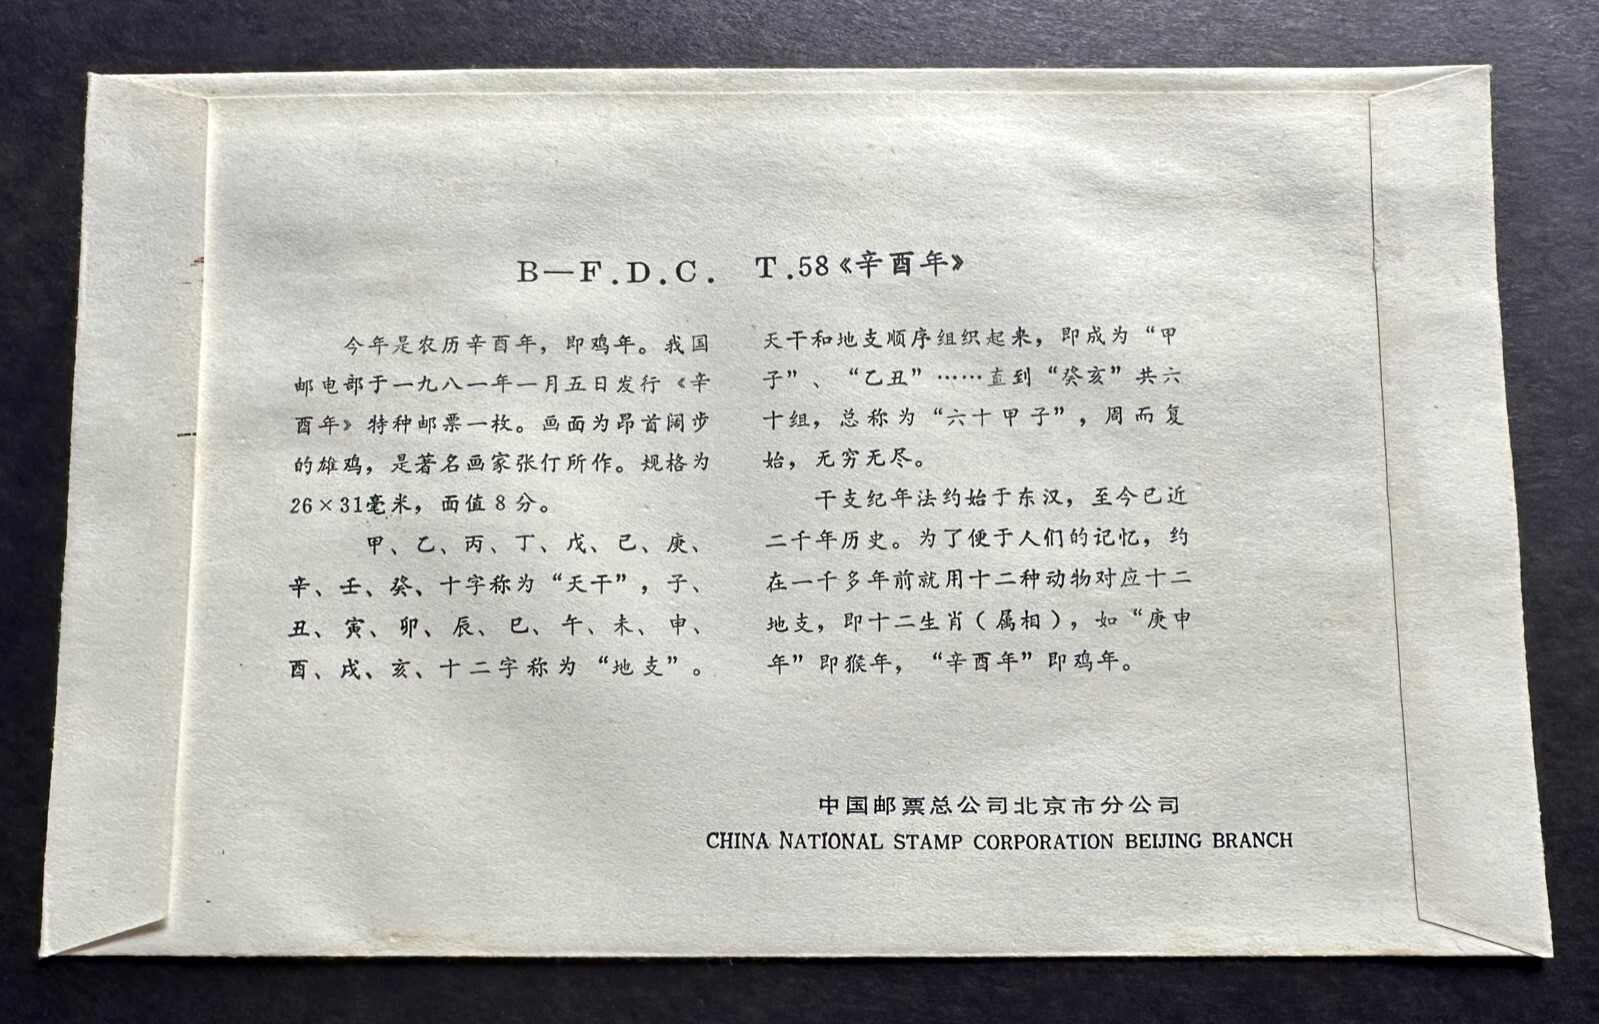 B—F.D.C. T.58《辛酉年》
今年是农历辛酉年，即鸡年。我国
邮电部于一九八一年一月五日发行《辛
酉年》特种邮票一枚。画面为昂首阔步
的雄鸡，是著名画家张仃所作。规格为
26×31毫米，面值8分。
甲、乙、丙、丁、戊、己、庚、
辛、壬、癸、十字称为“天干”，子、
丑、寅、卯、辰、巳、午、未、申、
酉、戌、亥、十二字称为“地支”。
天干和地支顺序组织起来，即成为“甲
子”、“乙丑”……直到“癸亥”共六
十组，总称为“六十甲子”，周而复
始，无穷无尽。
干支纪年法约始于东汉，至今已近
二千年历史。为了便于人们的记忆，约
在一千多年前就用十二种动物对应十二
地支，即十二生肖（属相），如“庚申
年”即猴年，“辛酉年”即鸡年。
中国邮票总公司北京市分公司
CHINA NATIONAL STAMP CORPORATION BEIJING BRANCH